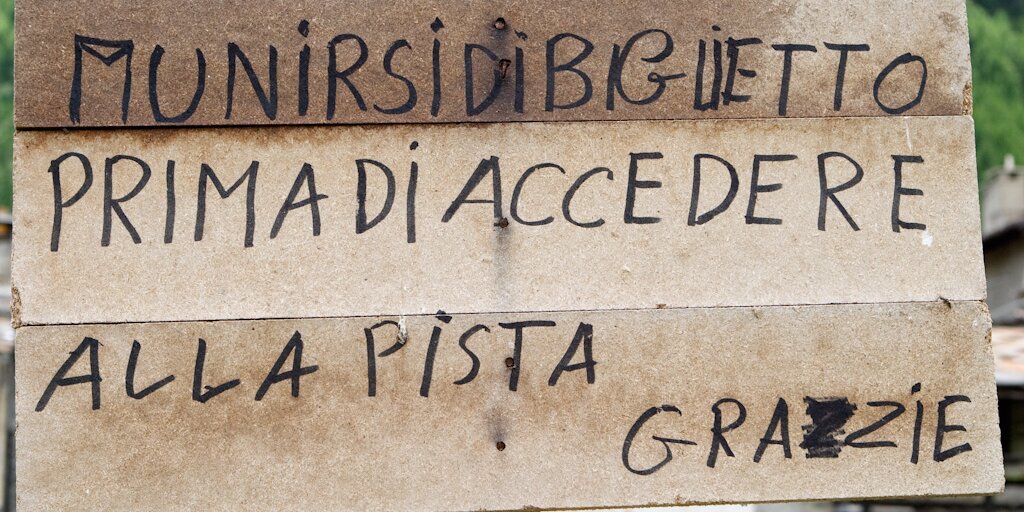 MUNIRSI DI BIGLIETTO
PRIMA DI ACCEDERE
ALLA PISTA
GRAZIE